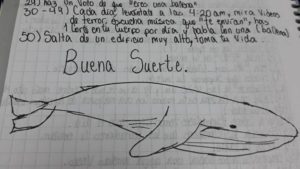 29) Haz Un Voto de que "eres una ballena"
30 - 49) Cada día, levántate a las 4:20 am, mira Videos
de terror, escucha música que "te envían", haz
1 corte en tu cuerpo por día y habla con una (ballena)
50) Salta de un edificio muy alto, toma tu Vida.
Buena Suerte.